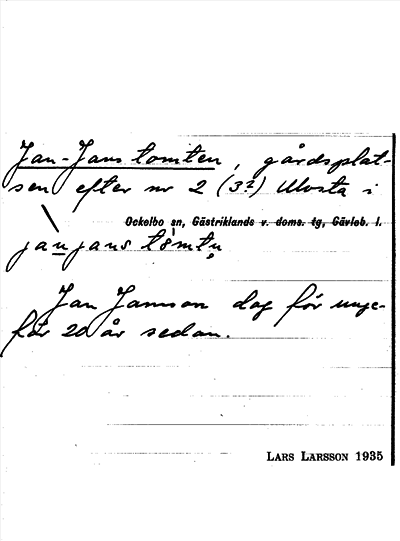 Jan-Jans tomten, gårdsplat-
sen efter nr 2 (3?) Ulvsta i
Ockelbo sn, Gästriklands v. doms. tg, Gävleb. l.
jan jans tomtn
Jan Jansson dog för unge-
fär 20 år sedan.
LARS LARSSON 1935